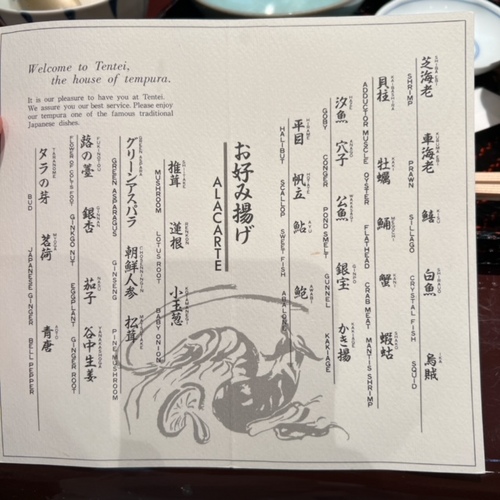 Welcome to Tentei,
the house of tempura.
It is our pleasure to have you at Tentei.
We assure you our best service. Please enjoy
our tempura one of the famous traditional
Japanese dishes.
芝海老 車海老 鱚 白魚 烏賊
SHRIMP PRAWN SILLAGO CRYSTAL FISH SQUID
貝柱 牡蠣 鯒 蟹 蝦蛄
ADDUCTOR MUSCLE OYSTER FLATHEAD CRAB MEAT MANTIS SHRIMP
沙魚 穴子 公魚 銀宝 かき揚
GOBY CONGER POND SMELT GUNNEL KAKIAGE
平目 帆立 鮎 鮑
HALIBUT SCALLOP SWEET FISH ABALONE
お好み揚げ
ALACARTE
椎茸 蓮根 小玉葱
MUSHROOM LOTUS ROOT BABY ONION
グリーンアスパラ 朝鮮人参 松茸
GREEN ASPARAGUS GINSENG PINE MUSHROOM
蕗の薹 銀杏 茄子 谷中生姜
GINKGO NUT EGGPLANT GINGER ROOT
タラの芽 茗荷 青唐
BUD JAPANESE GINGER BELL PEPPER